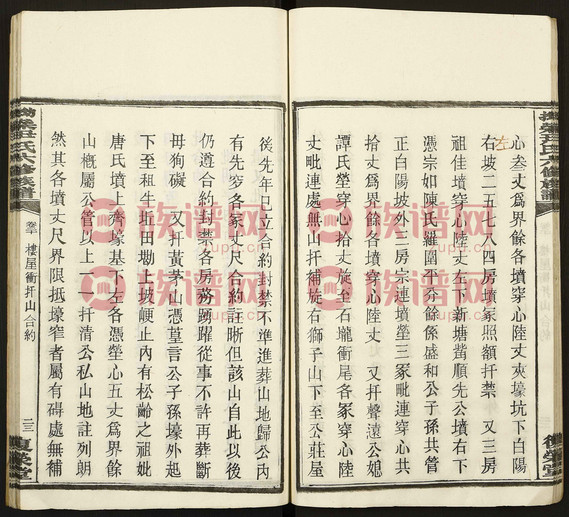 心叁丈爲界餘各墳穿心陸丈夾壕坑下白陽
左
右坡二五七八四房墳冢照額扦禁 又三房
祖佳墳穿心陸丈左下新塘嘴順先公墳右下
憑宗如陳氏羅圍丕芬餘係盛和公子孫共管
正白陽坡外三房宗連墳塋三冢毗連穿心共
拾丈爲界餘各墳穿心陸丈 又扦聲遠公媳
譚氏塋穿心拾丈旋至石壠衝尾各冢穿心陸
丈毗連處無山扦補旋右獅子山下至公莊屋
後先年已立合約封禁不準進葬山地歸公內
有先穸各冢丈尺合約註晰但該山自此以後
仍遵合約封禁各房務踴躍從事不許再葬斷
毋狥礙 又扦黃茅山憑莫言公子孫壕外起
下至祖牛坵田墈上坡㟁止內有松齡之祖妣
唐氏墳上齊塚基下左各憑塋心五丈爲界餘
山概屬公管以上一一扦清公私山地註列朗
然其各墳丈尺界限抵壕窄者屬有碍處無補
樓屋衝扦山合約
二三